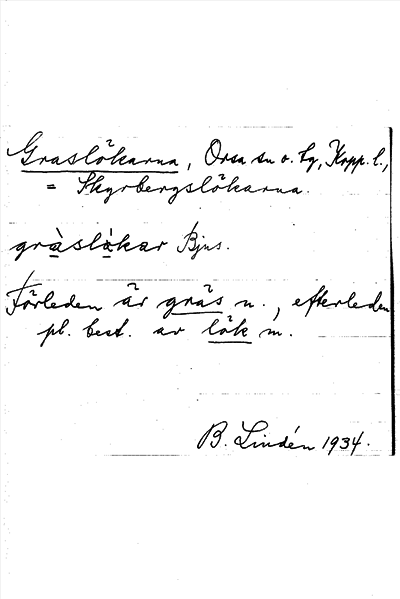 Graslökarna, Orsa sn o. tg, Kopp. l.,
= Skyrbergslökarna.
gràslòkar Bjus.
Förleden är gräs n., efterleden
pl. best. av lök m.
B. Lindén 1934.